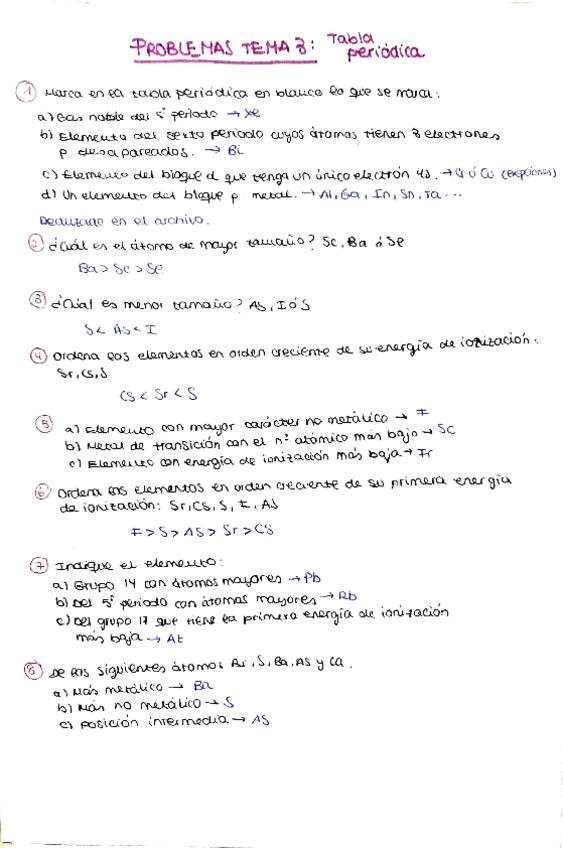 PROBLEMAS TEMA 3: Tabla periódica
1 Marca en la tabla periódica en blanco lo que se marca:
a) Gas noble del 5º periodo → Xe
b) Elemento del sexto periodo cuyos átomos tienen 3 electrones
p desapareados. → Bi
c) Elemento del bloque d que tenga un único electrón 4s. → Cr ó Cu (excepciones)
d) Un elemento del bloque p metal. → Al, Ga, In, Sn, Ta ...
Realizado en el archivo.
2 ¿Cuál es el átomo de mayor tamaño? Sc, Ba ó Se
Ba > Sc > Se
3 ¿Cuál es menor tamaño? As, I ó S
S < As < I
4 Ordena los elementos en orden creciente de su energía de ionización:
Sr, Cs, S
Cs < Sr < S
5 a) Elemento con mayor carácter no metálico → F
b) Metal de transición con el nº atómico más bajo → Sc
c) Elemento con energía de ionización más baja → Fr
6 Ordena los elementos en orden creciente de su primera energía
de ionización: Sr, Cs, S, F, As
F > S > As > Sr > Cs
7 Indique el elemento:
a) Grupo 14 con átomos mayores → Pb
b) Del 5º periodo con átomos mayores → Rb
c) Del grupo 17 que tiene la primera energía de ionización
más baja → At
8 De los siguientes átomos , S, Ba, As y Ca.
a) Más metálico → Ba
b) Más no metálico → S
c) Posición intermedia → As